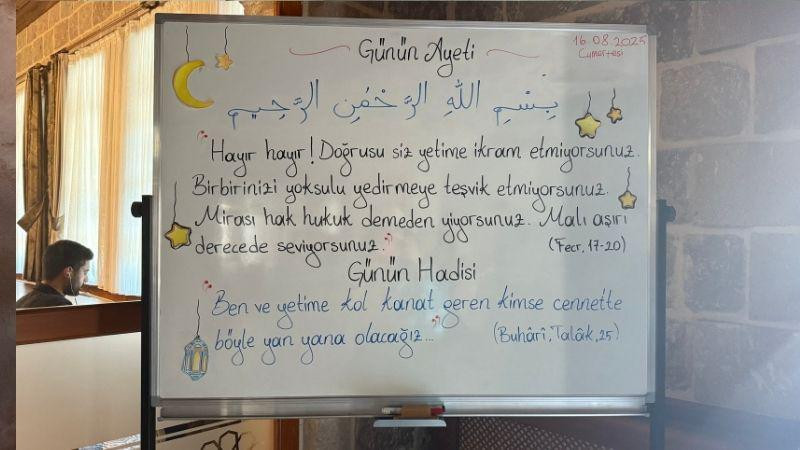 Günün Ayeti
16.08.2025
Cumartesi
بِسْمِ اللهِ الرَّحْمٰنِ الرَّحِيمِ
"Hayır hayır! Doğrusu siz yetime ikram etmiyorsunuz.
Birbirinizi yoksulu yedirmeye teşvik etmiyorsunuz.
Mirası hak hukuk demeden yiyorsunuz. Malı aşırı
derecede seviyorsunuz." (Fecr, 17-20)
Günün Hadisi
"Ben ve yetime kol kanat geren kimse cennette
böyle yan yana olacağız..." (Buhârî, Talâk, 25)